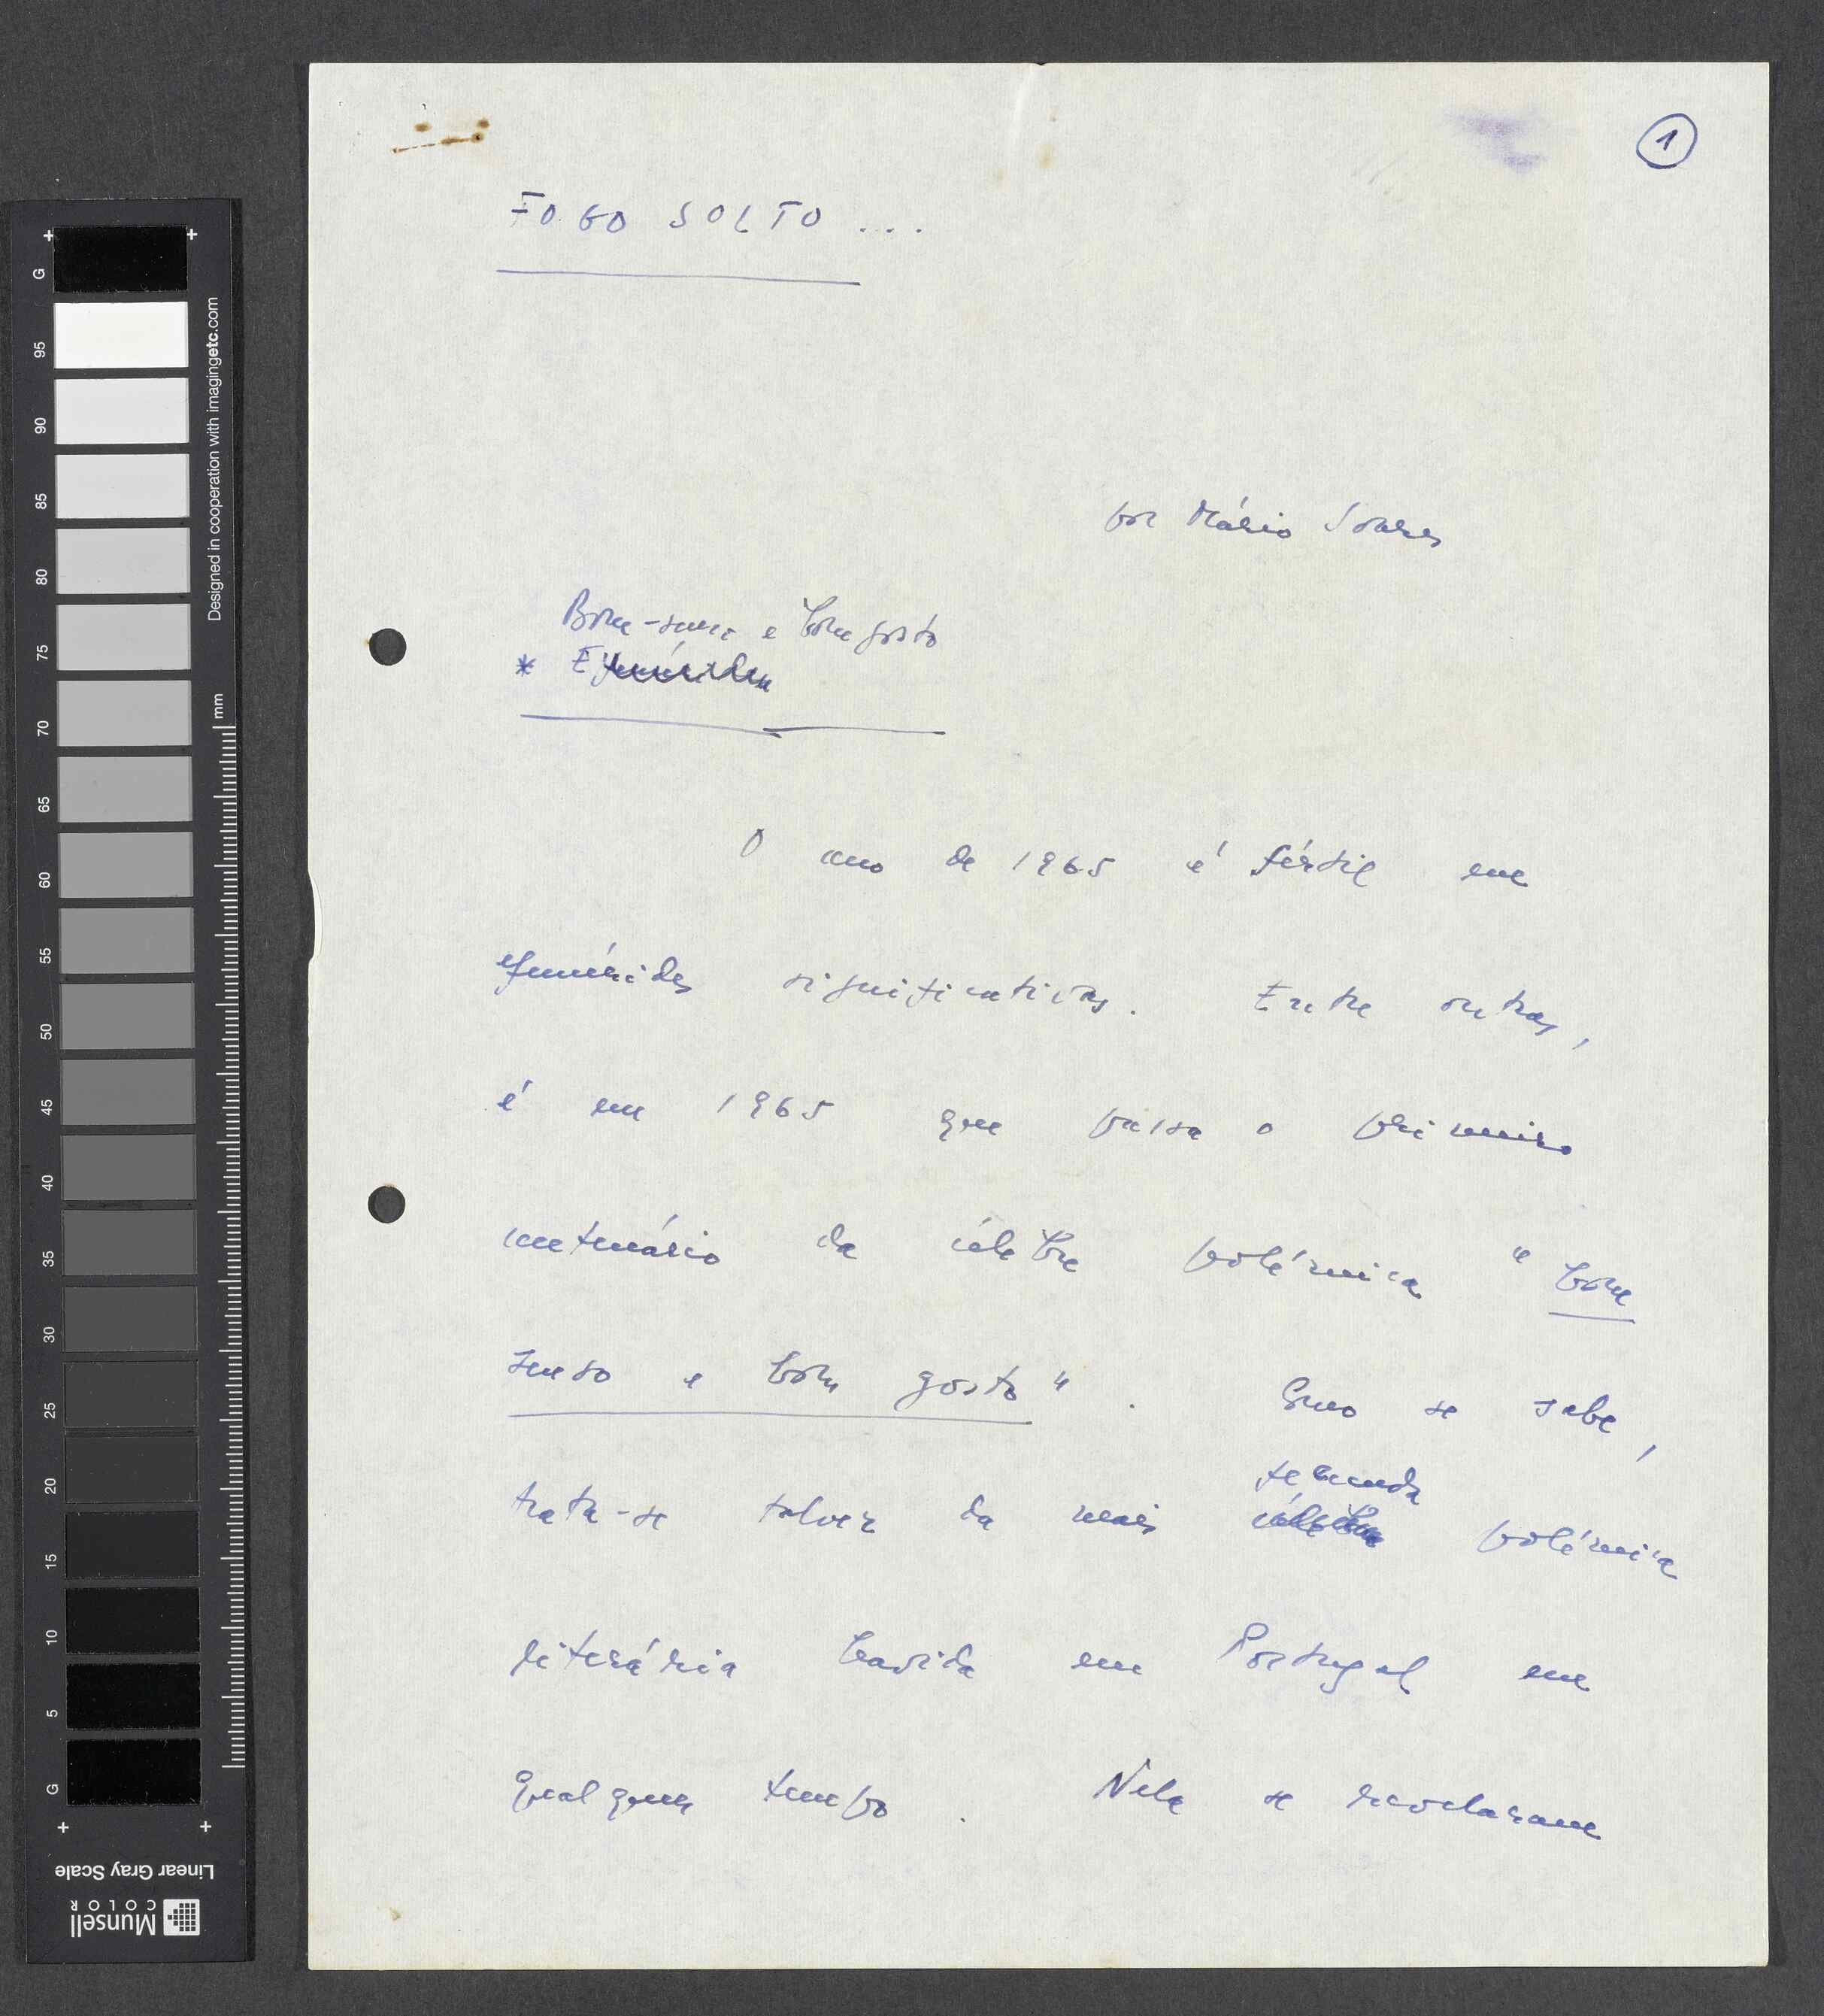 1
FOGO SOLTO ...
por Mário Soares
Bom-senso e bom gosto
* Efemérides
O ano de 1965 é fértil em
efemérides significativas. Entre outras,
é em 1965 que passa o primeiro
centenário da célebre polémica "bom
senso e bom gosto". Como se sabe,
fecunda
trata-se talvez da mais célebre polémica
literária havida em Portugal em
qualquer tempo. Nela se revelaram
G
95
90
85
80
75
70
65
60
55
50
45
40
35
30
25
20
15
10
5
G
mm
Designed in cooperation with imagingetc.com
Linear Gray Scale
Munsell
COLOR